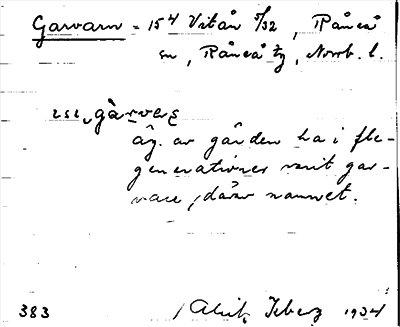 Garvarn - 15⁴ Vitån 5/32, Råneå
sn, Råneå tg, Norrb. l.
gàrverę
äg. av gården ha i fle-
generationer varit gar-
vare, därav namnet.
383 1934